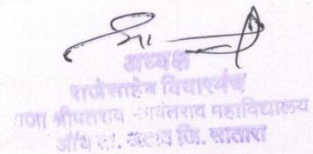 अध्यक्ष
राजेसाहेब विचारमंच
राजा श्रीपतराव भगवंतराव महाविद्यालय
औंध ता. खटाव जि. सातारा